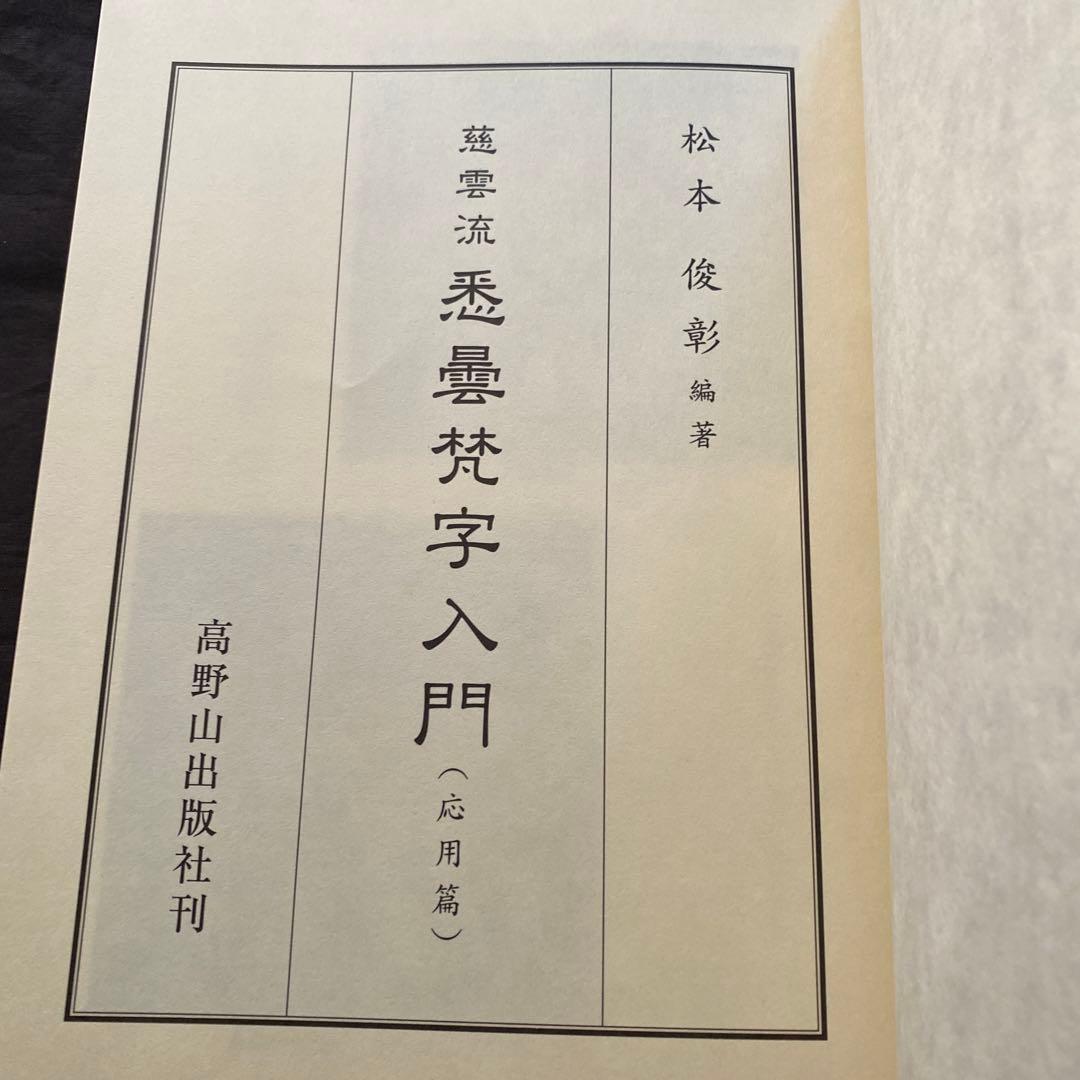 松本俊彰編著
慈雲流悉曇梵字入門(応用篇)
高野山出版社刊